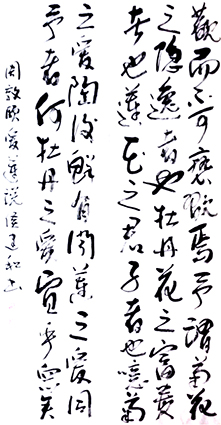 觀而不可褻翫焉予謂菊花
之隱逸者也牡丹花之富貴
者也蓮花之君子者也噫菊
之愛陶後鮮有聞蓮之愛同
予者何牡丹之愛宜乎眾矣
周敦頤愛蓮說